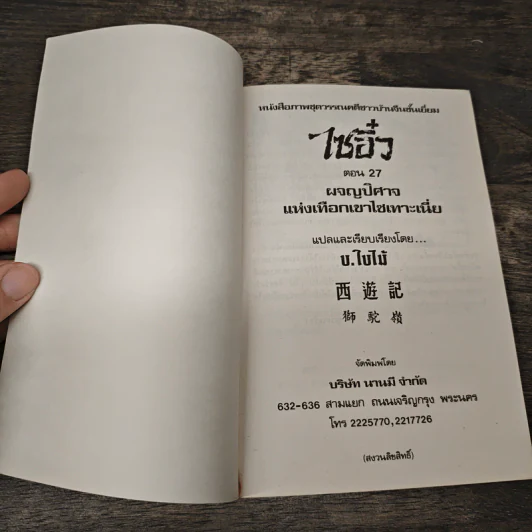 หนังสือภาพชุดวรรณคดีชาวบ้านจีนชั้นเยี่ยม
ไซอิ๋ว
ตอน 27
ผจญปีศาจ
แห่งเทือกเขาไซเทาะเนี่ย
แปลและเรียบเรียงโดย...
บ.ใบไม้
西遊記
獅駝嶺
จัดพิมพ์โดย
บริษัท นานมี จำกัด
632-636 สามแยก ถนนเจริญกรุง พระนคร
โทร 2225770,2217726
(สงวนลิขสิทธิ์)